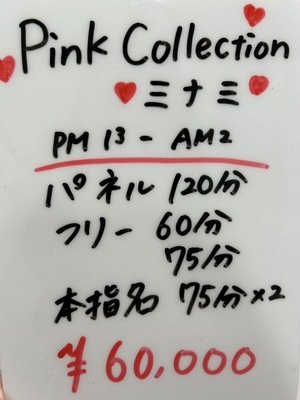 Pink Collection
ミナミ
PM 13 - AM2
パネル 120分
フリー 60分
75分
本指名 75分×2
¥60,000